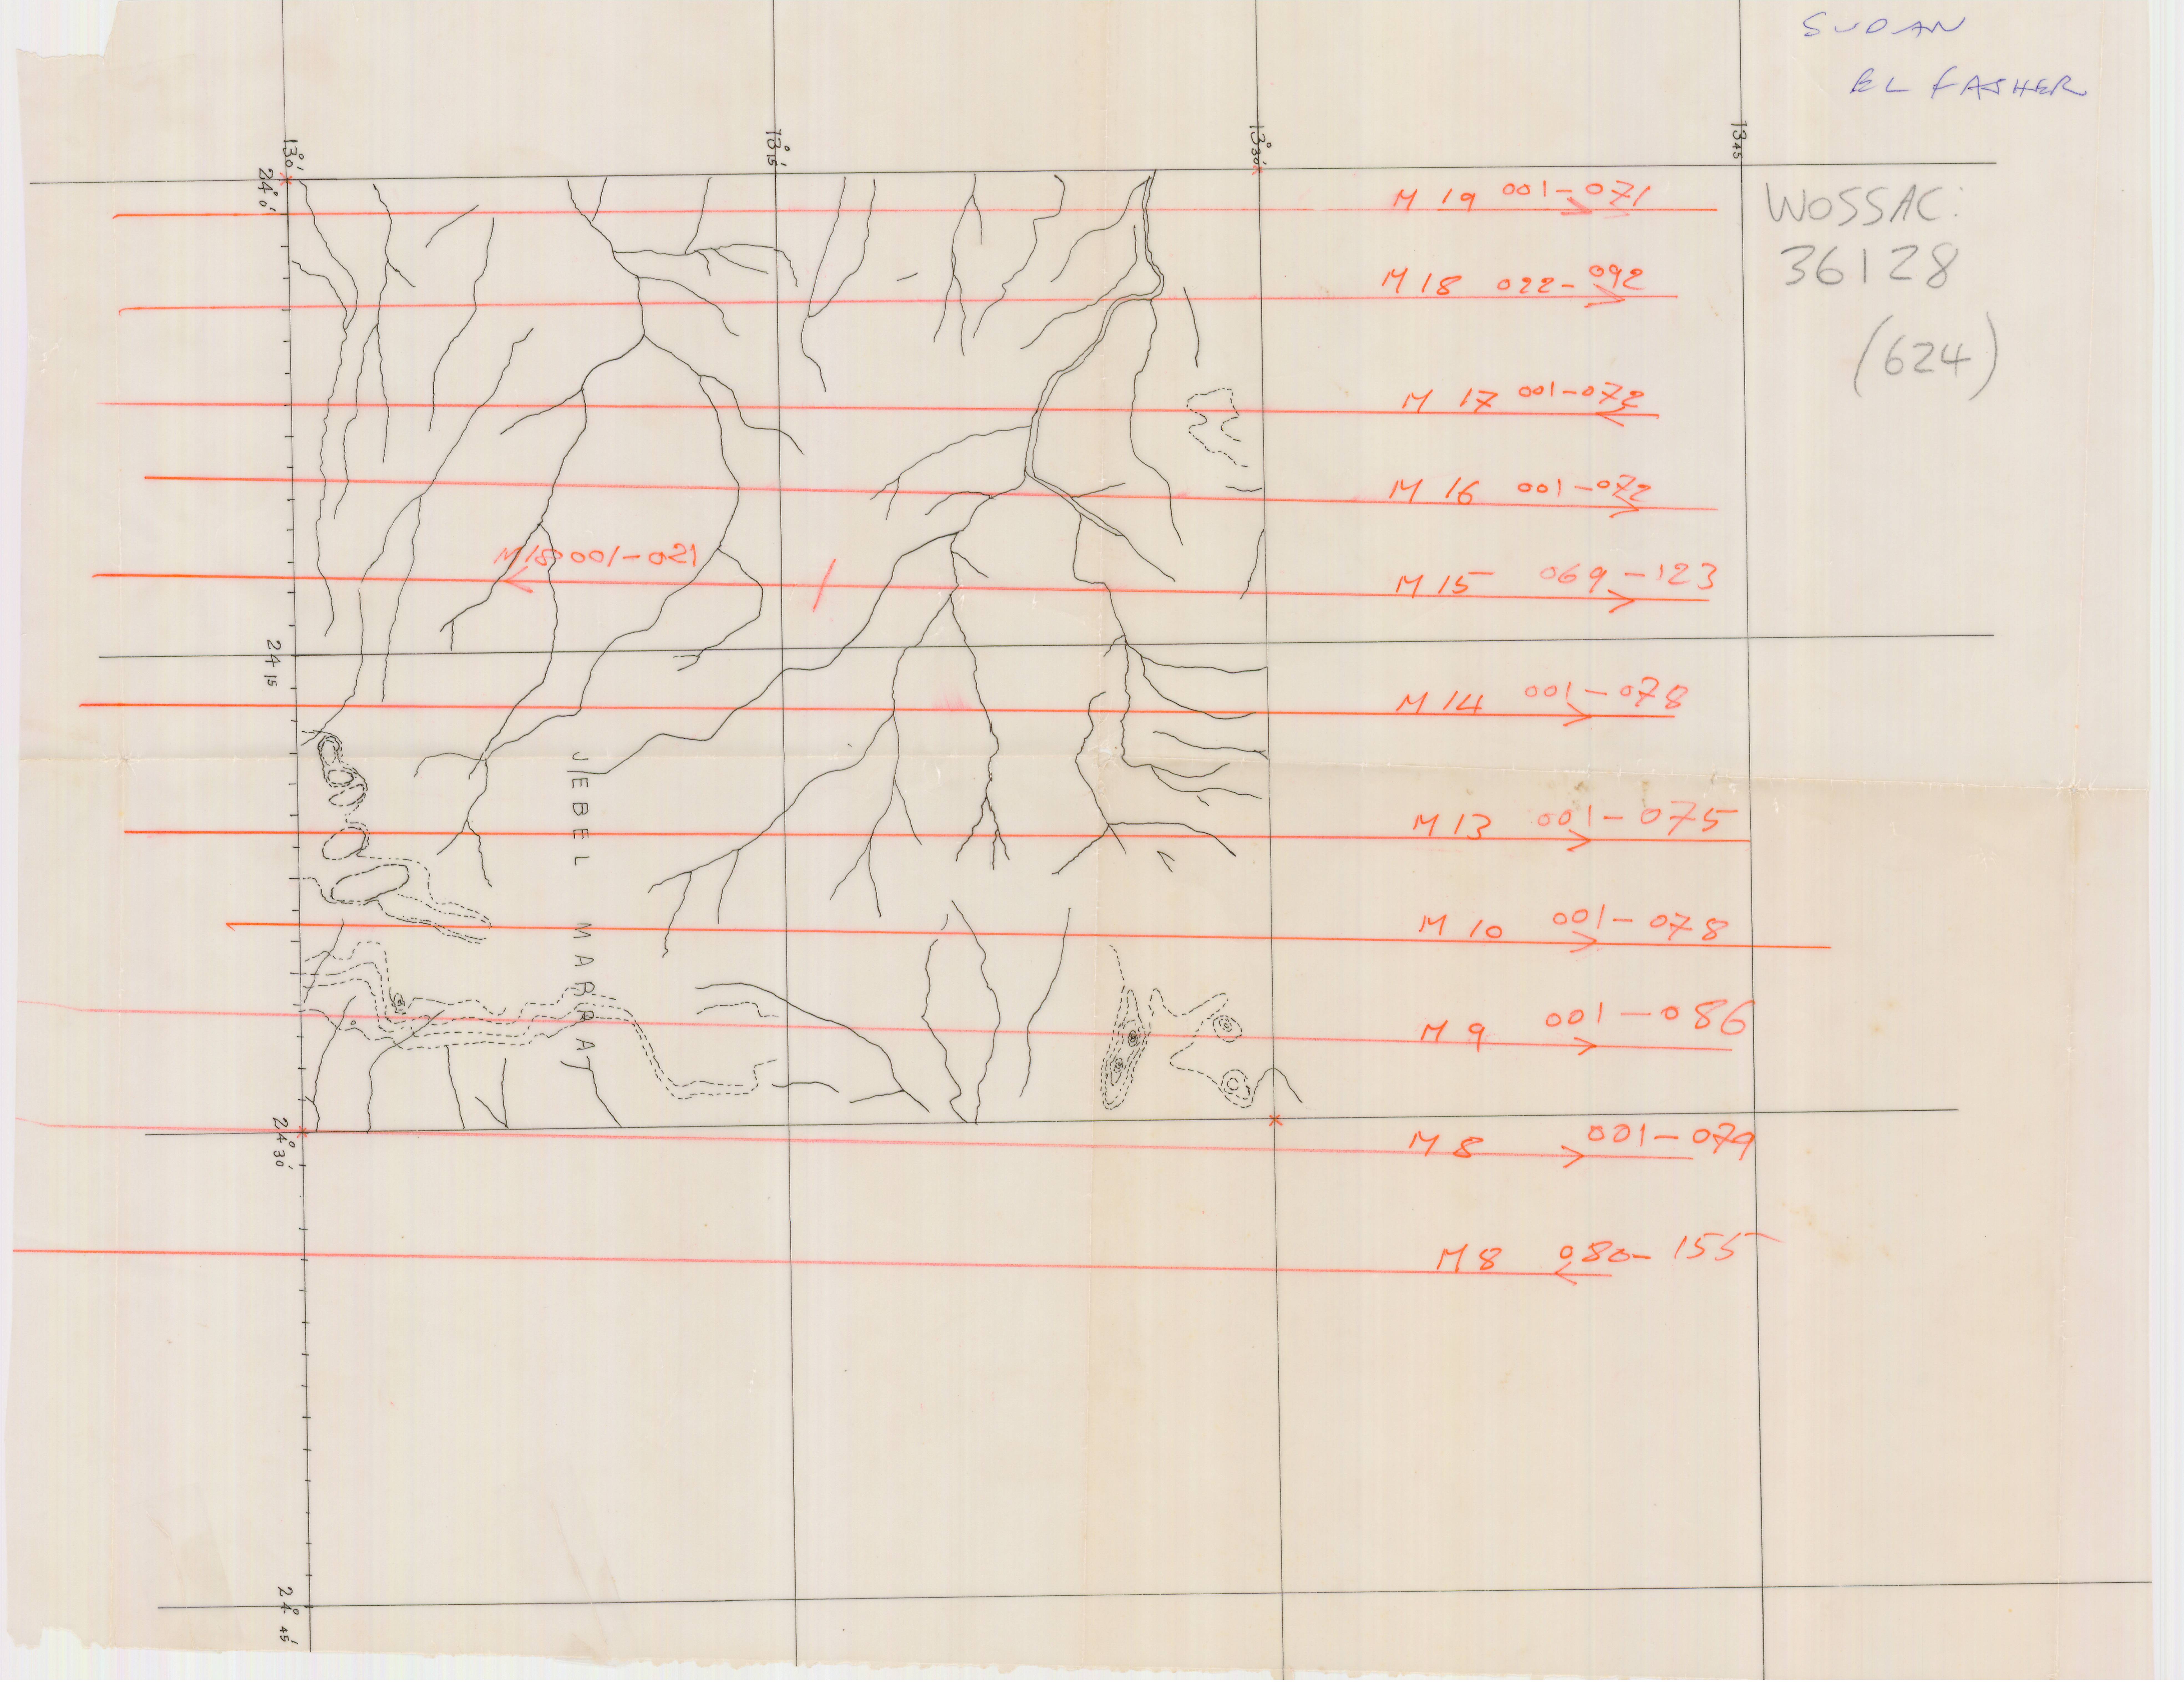 SUDAN
EL FASHER
13° 0'
13° 15'
13° 30'
13 45
24° 0'
M 19 001-071
WOSSAC:
36128
(624)
M 18 022-092
M 17 001-072
M 16 001-072
M 18 001-021
M 15 069-123
24 15
M 14 001-078
JEBEL MARRAT
M 13 001-075
M 10 001-078
M 9 001-086
24° 30'
M 8 001-079
M 8 080-155
24° 45'